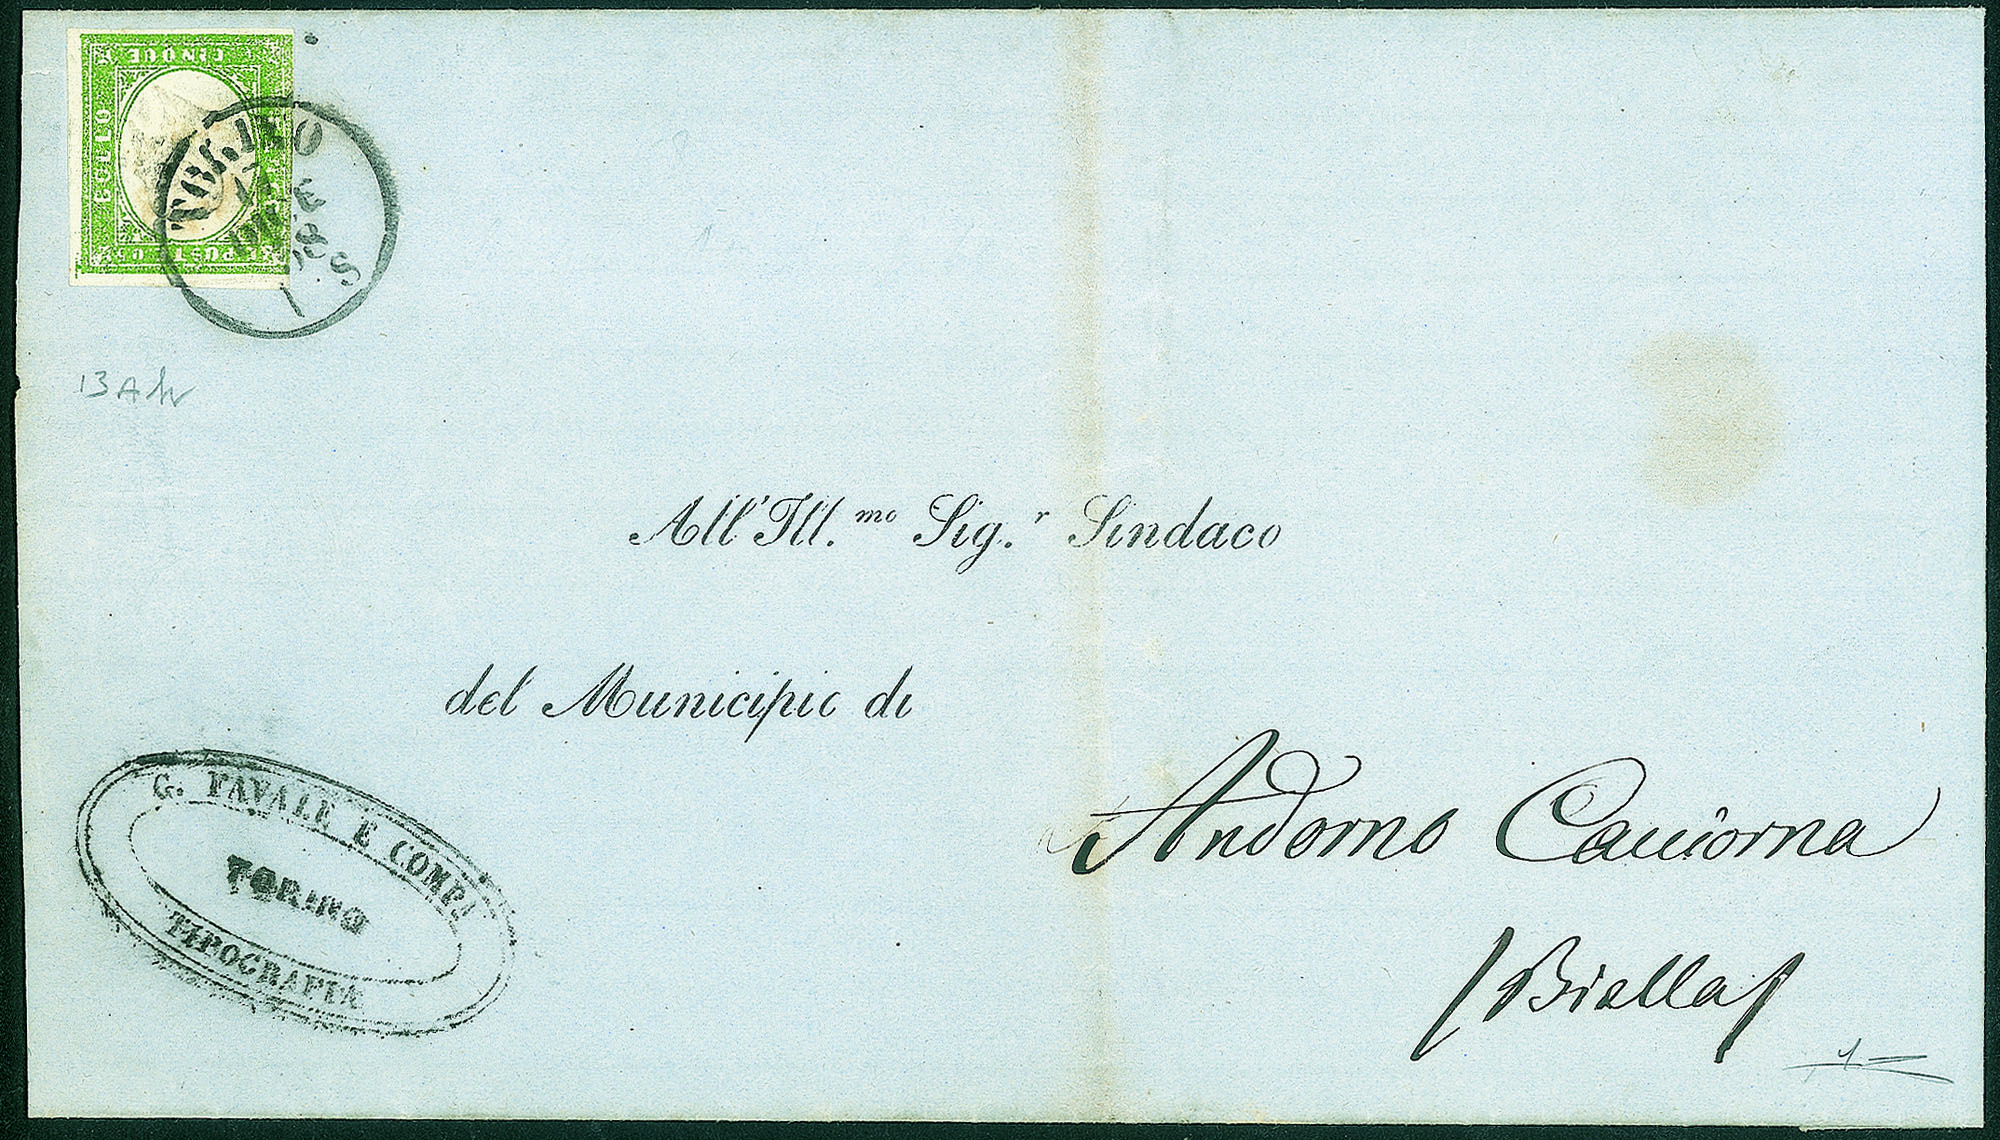 CINQUE
BOLLO
POSTE
C.5
TORINO
DICE
58
S
13A
All'Ill.mo Sig.r Sindaco
del Municipio di
Andorno Cacciorna
/Biella/
G. FAVALE E COMPA
TORINO
TIPOGRAFIA